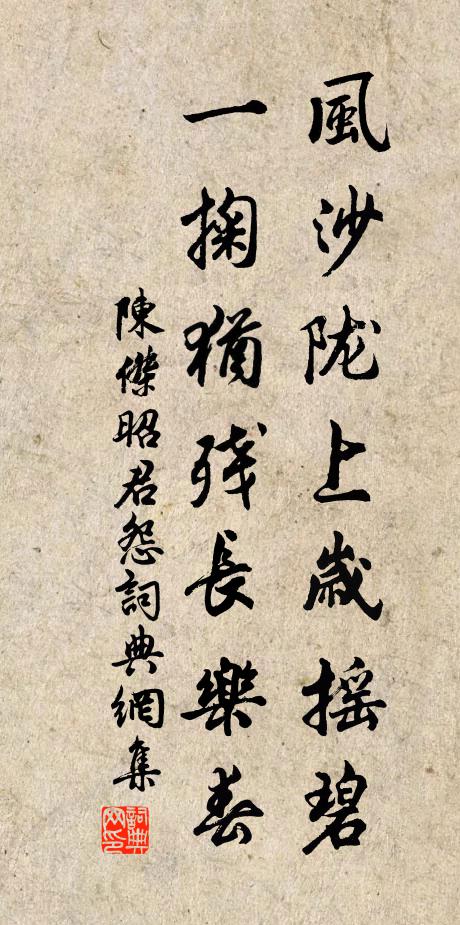 風沙陇上歲摇碧
一掬猶残長樂春
陳傑昭君怨詞典網集
詞典网印